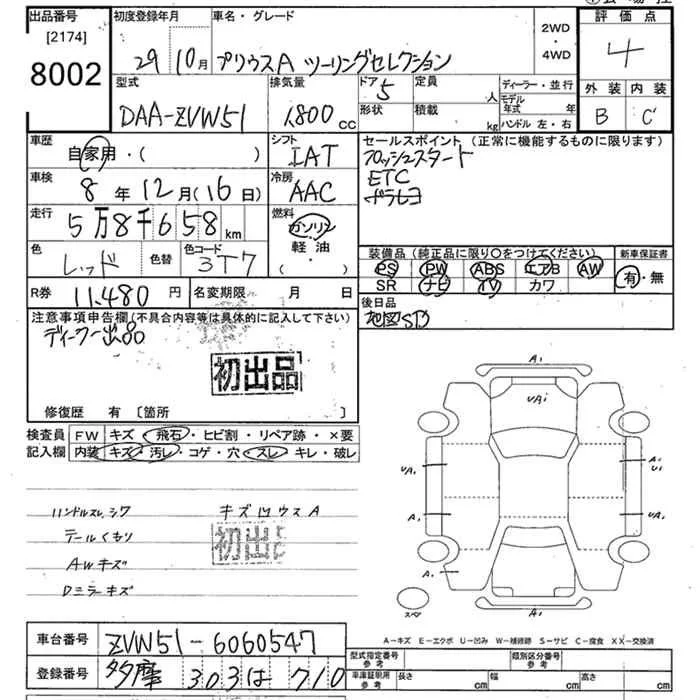 出品番号
[2174]
8002
初度登録年月
29 10月
車名・グレード
プリウスA ツーリングセレクション
2WD
・
4WD
評価点
4
外装 内装
B C
型式
DAA-ZVW51
排気量
1,800 cc
ドア 5
形状
定員 人
積載 kg
ディーラー・並行
モデル年式 年
ハンドル 左・右
車歴
自家用・( )
シフト
IAT
セールスポイント(正常に機能するものに限ります)
プッシュスタート
ETC
車検
8年12月(16日)
冷房
AAC
走行
5万8千658km
燃料
ガソリン
軽油
・( )
色
レッド
色替
色コード
3T7
装備品(純正品に限り〇をつけてください)
PS PW ABS エアB AW
SR ナビ TV カワ
新車保証書
有・無
R券 11,480 円
名変期限 月 日
後日品
地図SD
注意事項申告欄(不具合内容等は具体的に記入して下さい)
初出品
修復歴 有 〔箇所 〕
検査員
記入欄
FW キズ・飛石・ヒビ割・リペア跡・×要
内装 キズ・汚レ・コゲ・穴・スレ・キレ・破レ
ハンドルスレ、シワ
テールくもり
AWキズ
Dミラーキズ
初出品
A1
UA1
UA1
A1
U1
UA1
UA1
A1
A1
A1
スペア
A-キズ E-エクボ U-凹み W-補修跡 S-サビ C-腐食 XX-交換済
車台番号 ZVW51-6060547
登録番号 多摩 303 は 710
型式指定番号
参考
類別区分番号
参考
車庫証明用
参考
長さ cm
幅 cm
高さ cm